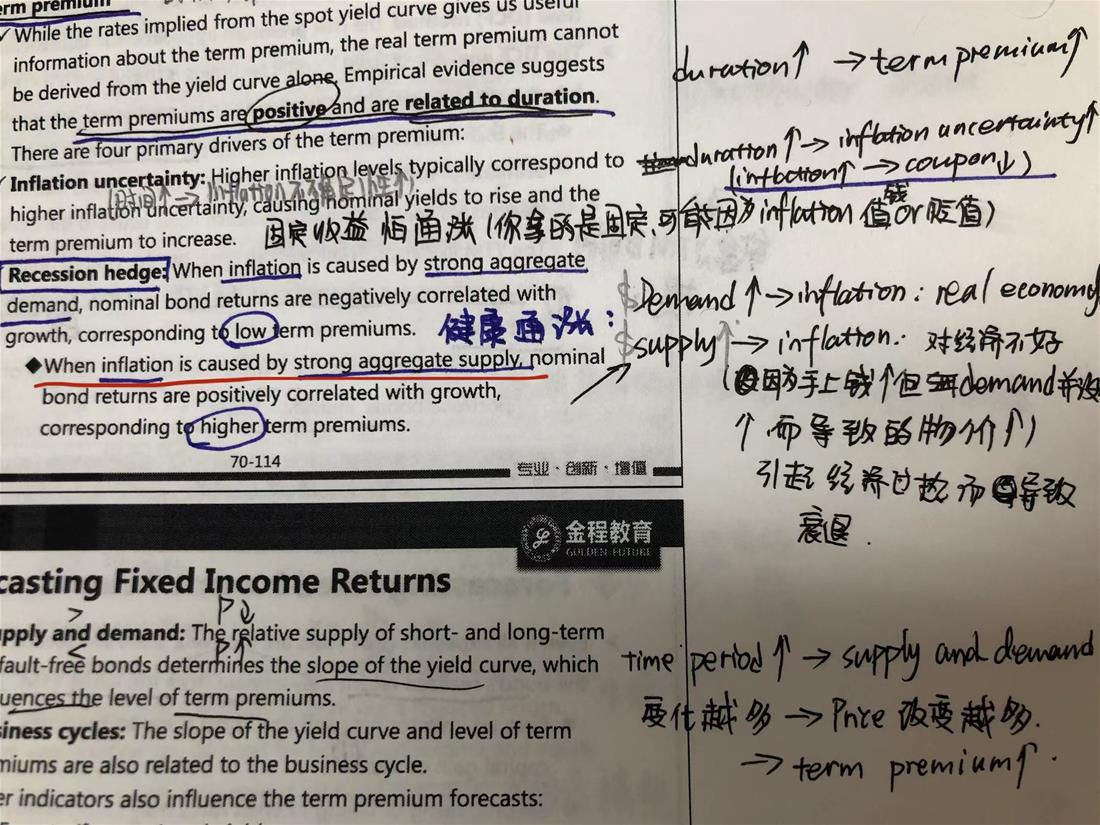 erm premium
✓While the rates implied from the spot yield curve gives us useful
information about the term premium, the real term premium cannot
be derived from the yield curve alone. Empirical evidence suggests
that the term premiums are positive and are related to duration.
There are four primary drivers of the term premium:
Inflation uncertainty: Higher inflation levels typically correspond to
(时间↑→inflation不确定性↑)
higher inflation uncertainty, causing nominal yields to rise and the
term premium to increase.
固定收益 怕通涨(你拿的是固定,可能因为inflation 值钱or贬值)
Recession hedge: When inflation is caused by strong aggregate
demand, nominal bond returns are negatively correlated with
growth, corresponding to low term premiums.
健康通涨:
◆When inflation is caused by strong aggregate supply, nominal
bond returns are positively correlated with growth,
corresponding to higher term premiums.
70-114
专业·创新·增值
duration↑ →term premium↑
duration↑→inflation uncertainty↑
(inflation↑ →coupon↓)
$Demand↑→inflation: real economy
$supply↑→inflation: 对经济不好
(因为手上钱↑但demand并没
↑而导致的物价↑)
引起经济过热而导致
衰退.
金程教育
GOLDEN FUTURE
casting Fixed Income Returns
> P↓
pply and demand: The relative supply of short- and long-term
< P↑
fault-free bonds determines the slope of the yield curve, which
uences the level of term premiums.
siness cycles: The slope of the yield curve and level of term
miums are also related to the business cycle.
er indicators also influence the term premium forecasts:
time period↑ →supply and demand
变化越多→Price 改变越多.
→term premium↑.